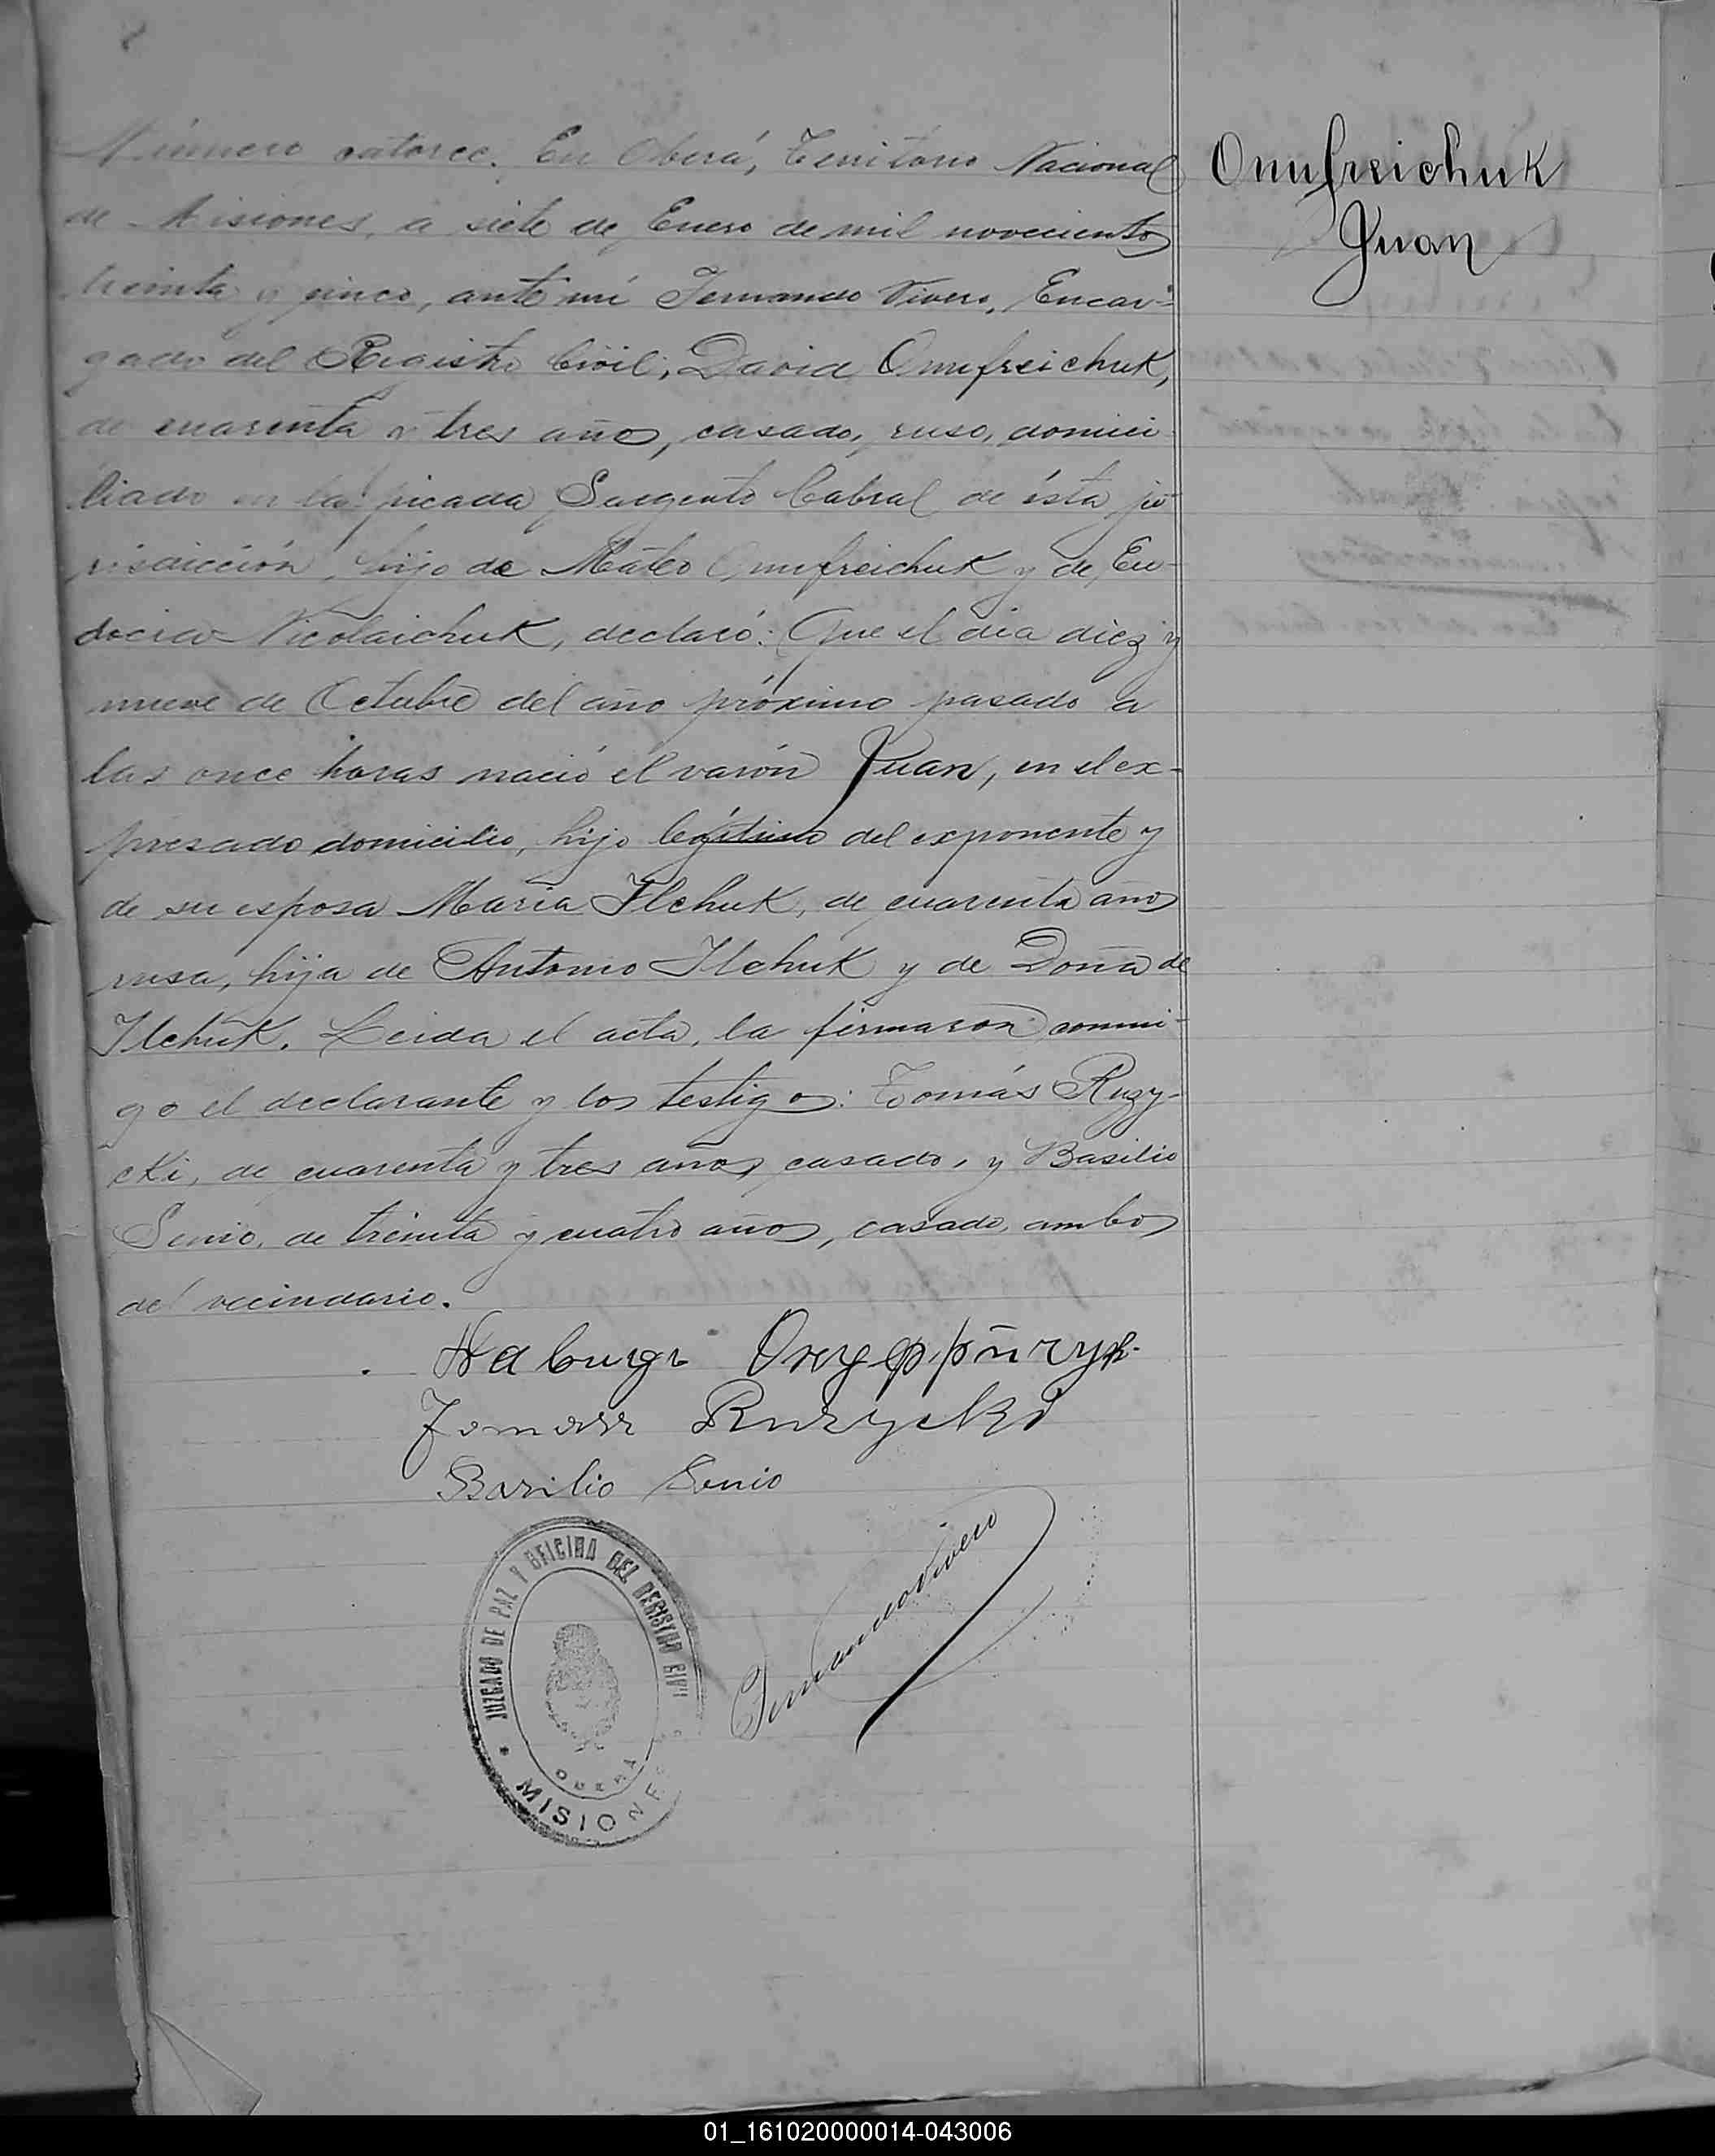 Número catorce. En Oberá, Territorio Nacional
de Misiones, a siete de Enero de mil novecientos
treinta y cinco, ante mí Fernando Vivero, Encar-
gado del Registro Civil; David Onufreichuk,
de cuarenta y tres años, casado, ruso, domici
liado en la picada Sargento Cabral de ésta ju-
risdicción, hijo de Mateo Onufreichuk y de Eu-
docia Nicolaichuk, declaró: Que el día diez y
nueve de Octubre del año próximo pasado a
las once horas nació el varón Juan, en el ex-
presado domicilio, hijo legítimo del exponente y
de su esposa María Ilchuk, de cuarenta años
rusa, hija de Antonio Ilchuk y de Doña de
Ilchuk. Leida el acta, la firmaron conmi-
go el declarante y los testigos: Tomás Ruzy-
cki, de cuarenta y tres años, casado, y Basilio
Senio, de treinta y cuatro años, casado, ambos
del vecindario.
Onufreichuk
Juan
Tomasz Ruzycki
Basilio Senio
Fernando Vivero
JUZGADO DE PAZ Y OFICINA DEL REGISTRO CIVIL
OBERA
* MISIONES
01_161020000014-043006